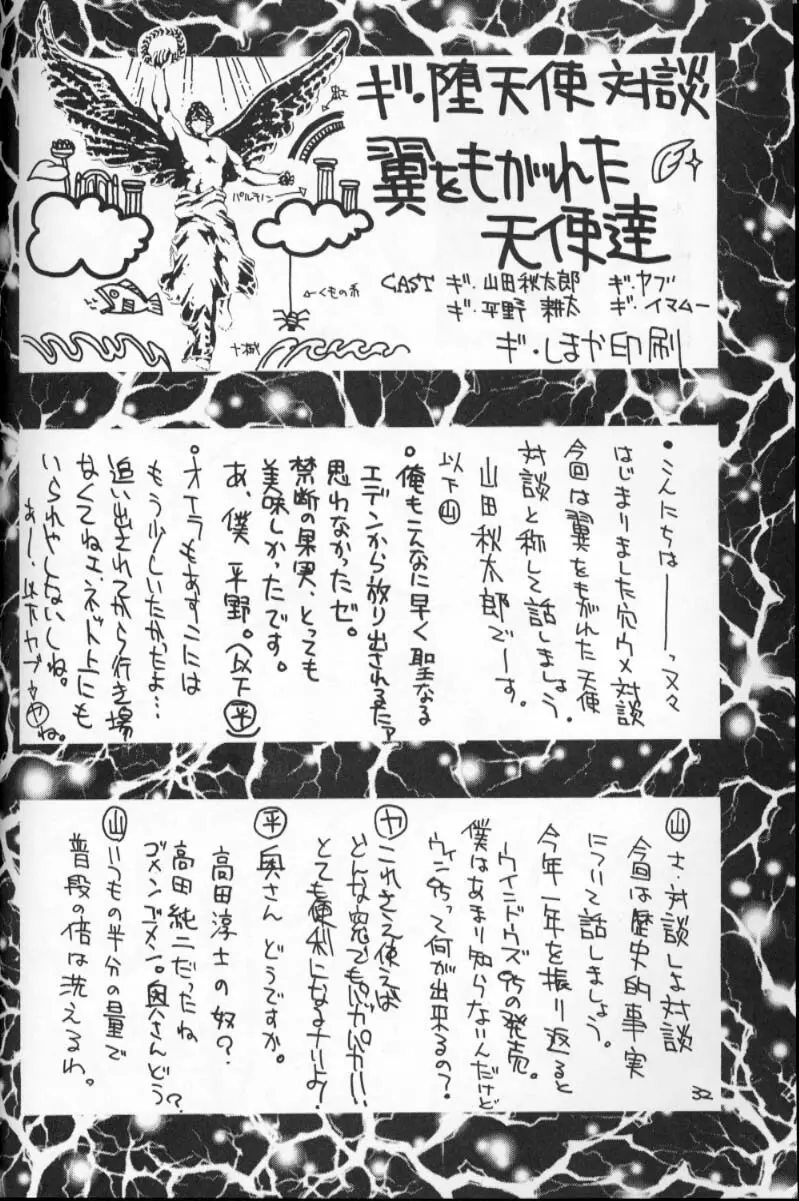 ギ・堕天使 対談
翼をもがれた
天使達
CAST ギ・山田秋太郎 ギ・ヤブ
ギ・平野 耕太 ギ・イマムー
ギ・しまや印刷
虹
パルテノン→
←くもの糸
・こんにちはーーーっ又々
はじまりました穴ウメ対談
今回は翼をもがれた天使
対談と称して話しましょう。
山田秋太郎でーす。
以下㊤山
・俺もこんなに早く聖なる
エデンから放り出されるたァ
思わなかったゼ。
禁断の果実、とっても
美味しかったです。
あ、僕 平野。(以下平)
・オイラもあすこには
もう少しいたかったよ…
追い出されてから行き場
なくてねェ、ネドト上にも
いられやしないしね。
あー、以下ヤブ→ヤね。
山 さ・対談しよ対談
今回は歴史的事実
について話しましょう。
今年一年を振り返ると
ウインドウズ95の発売。
僕はあまり知らないんだけど
ウィン95って何が出来るの?
ヤ これさえ使えば
どんな窓でもパカパカ!!
とても便利になるナリよ!
平 奥さん どうですか。
高田淳士の奴?
高田純二だったね
ゴメンゴメン。奥さんどう?
山 いつもの半分の量で
普段の倍は洗えるわ。
32